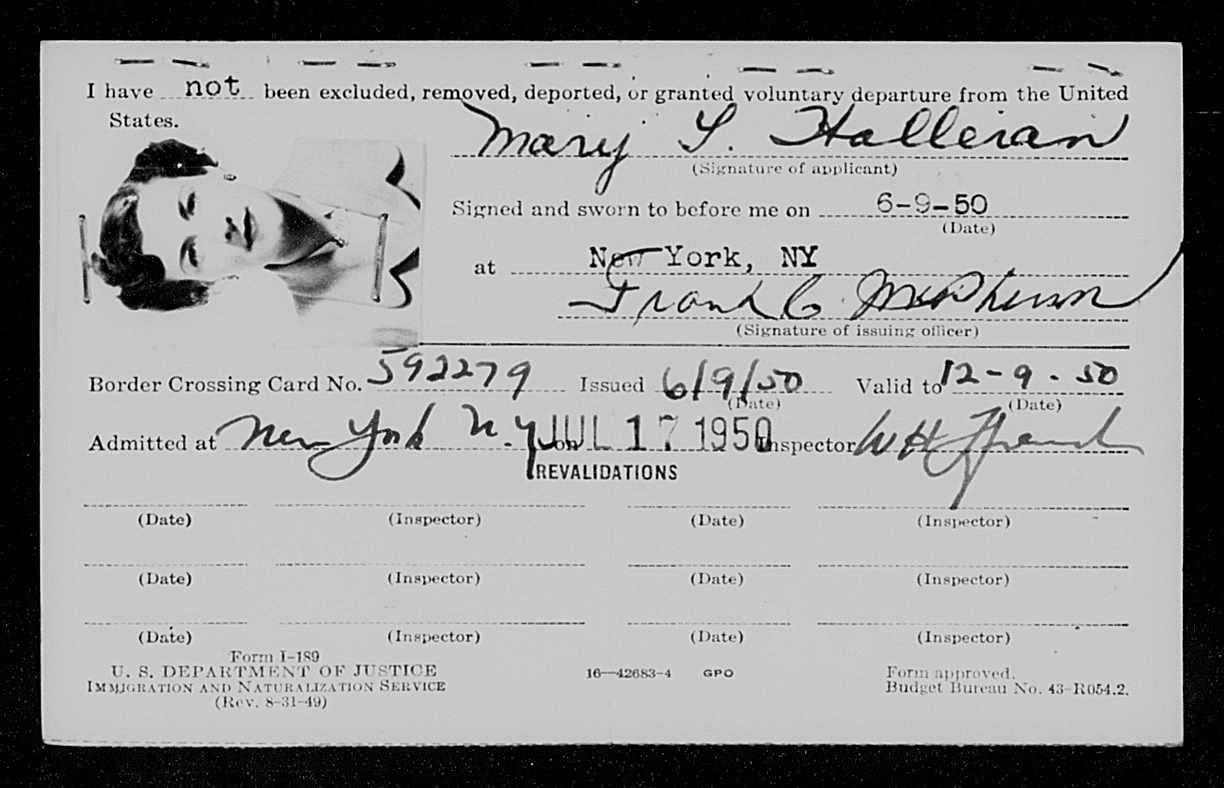 I have not been excluded, removed, deported, or granted voluntary departure from the United
States.
Mary L. Halleran
(Signature of applicant)
Signed and sworn to before me on 6-9-50
(Date)
at New York, NY
Frank C. McPherson
(Signature of issuing officer)
Border Crossing Card No. 592279 Issued 6/9/50 Valid to 12-9-50
(Date) (Date)
Admitted at New York N.Y. on JUL 17 1950 Inspector W H
REVALIDATIONS
(Date) (Inspector) (Date) (Inspector)
(Date) (Inspector) (Date) (Inspector)
(Date) (Inspector) (Date) (Inspector)
Form I-189
U. S. DEPARTMENT OF JUSTICE 16—42683-4 GPO Form approved.
IMMIGRATION AND NATURALIZATION SERVICE Budget Bureau No. 43-R054.2.
(Rev. 8-31-49)